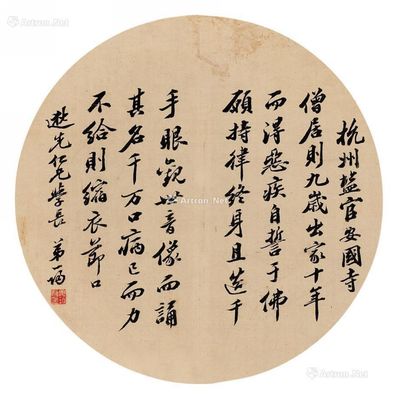 杭州盐官安國寺
僧居則九歲出家十年
而得惡疾自誓于佛
願持律終身且造千
手眼觀世音像而誦
其名千万口病已而力
不給則縮衣節口
遜先仁兄學長 弟瑞
Artron.Net
Artron.Net
Artron.Net
Artron.Net